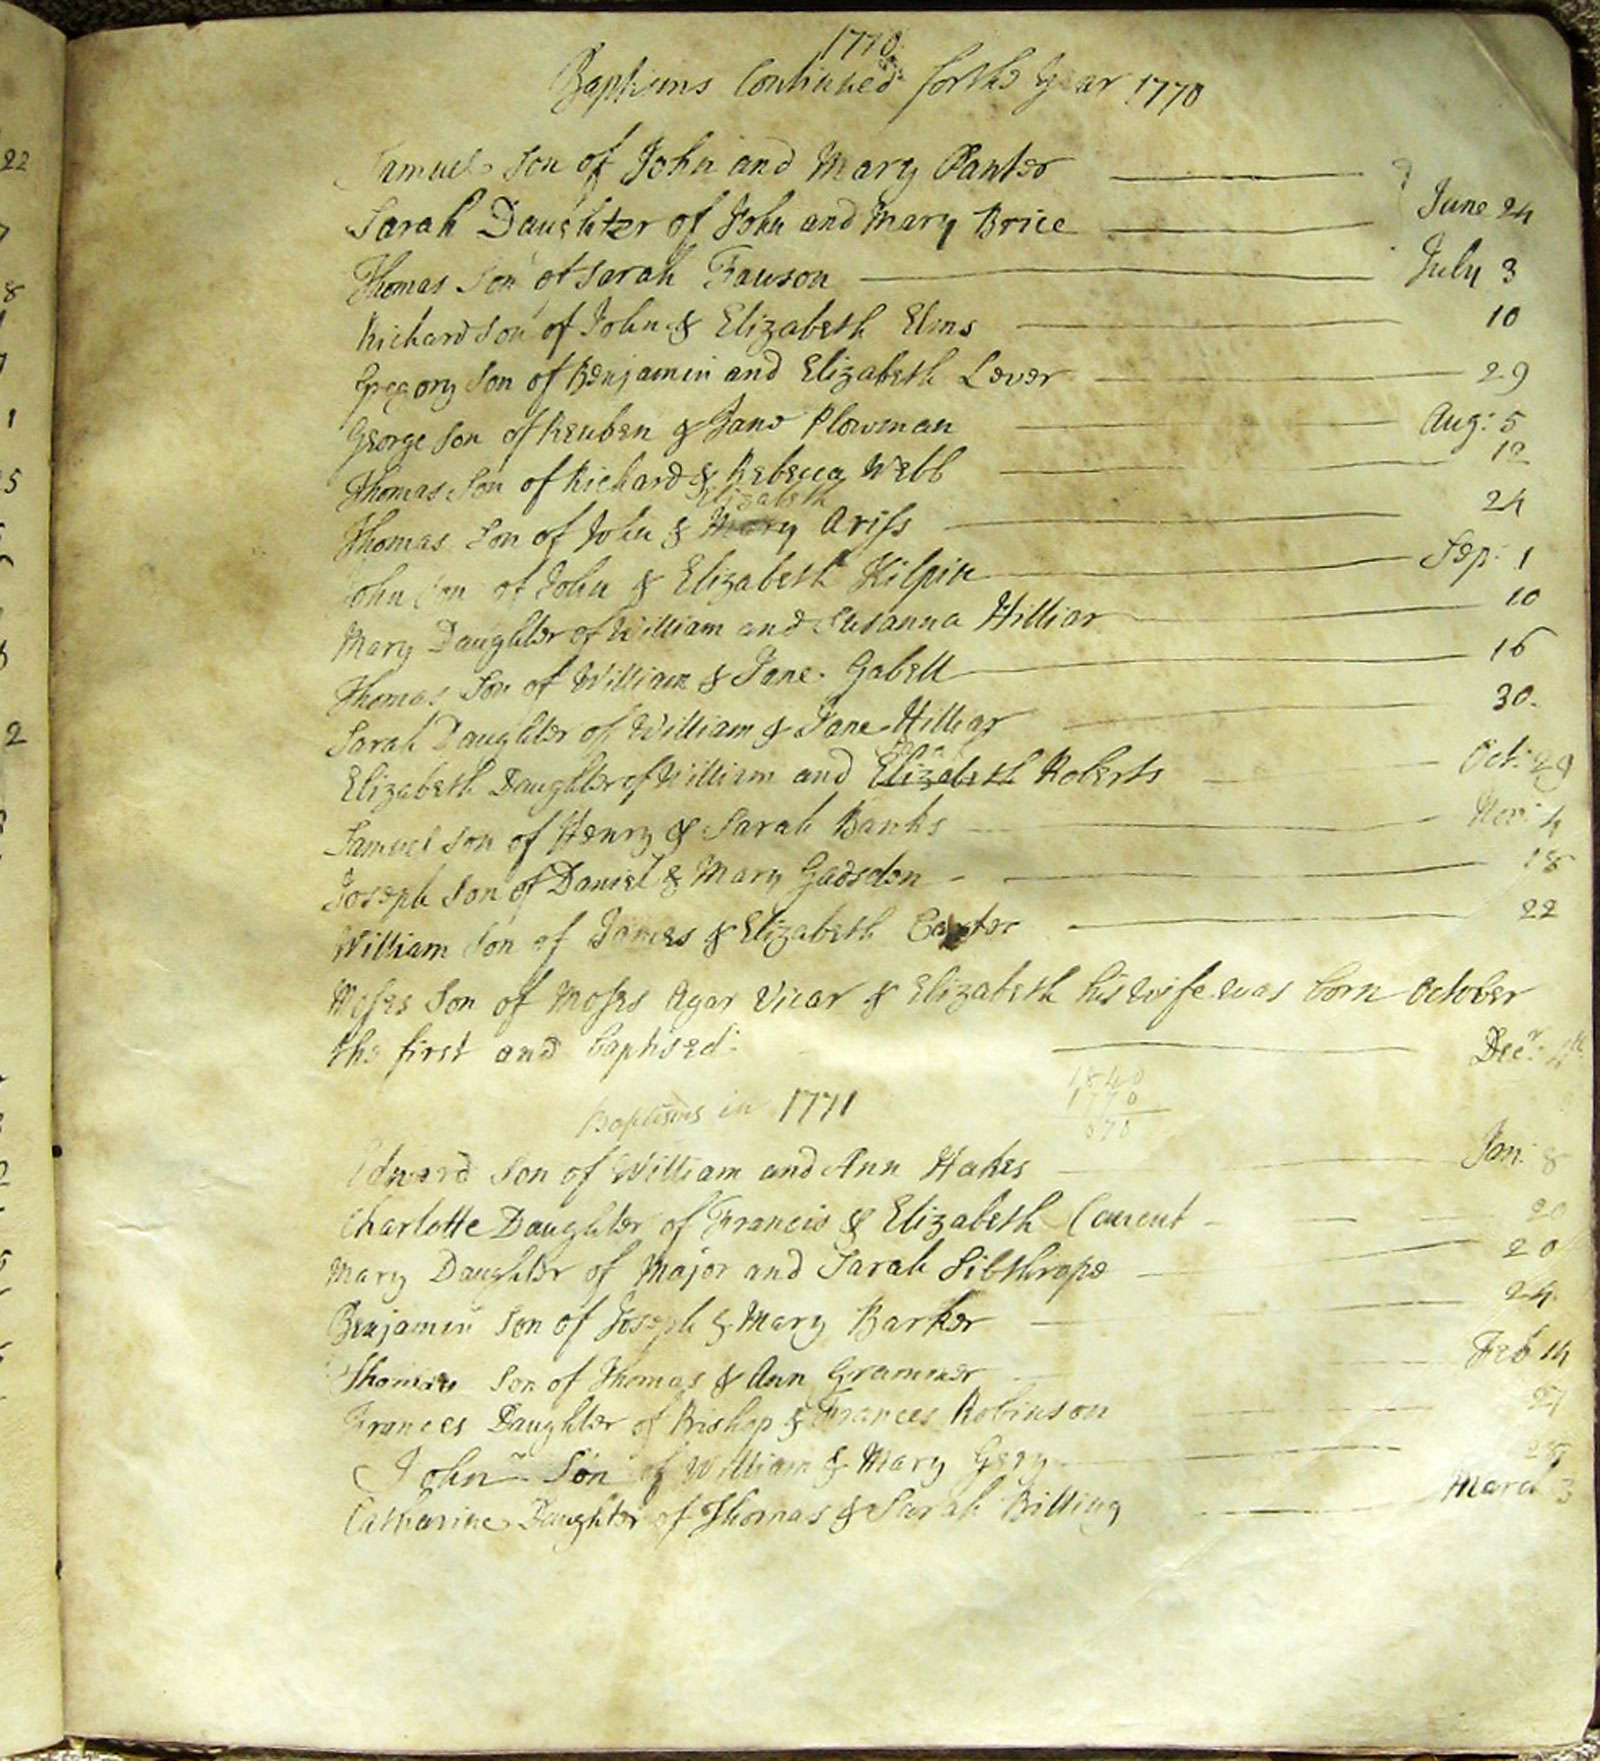 1770
Baptisms Continued for the Year 1770
Samuel Son of John and Mary Panter
Sarah Daughter of John and Mary Brice June 24
Thomas Son of Sarah Fawson July 3
Richard Son of John & Elizabeth Elms 10
Gregory Son of Benjamin and Elizabeth Lever 29
George Son of Reuben & Jane Plowman Aug: 5
Thomas Son of Richard & Rebecca Webb 12
Elizabeth
Thomas Son of John & Mary Ariss 24
John Son of John & Elizabeth Kilpin Sep: 1
Mary Daughter of William and Susanna Hilliar 10
Thomas Son of William & Jane Gabell 16
Sarah Daughter of William & Jane Hilliar 30.
Elizabeth Daughter of William and Elizabeth Roberts Oct: 29
Samuel Son of Henry & Sarah Banks Nov: 4
Joseph Son of Daniel & Mary Gadsden 18
William Son of James & Elizabeth 22
Moses Son of Moses Agar Vicar & Elizabeth his wife was born October
the first and baptised Decr:
1840
1770
070
Baptisms in 1771
Edward Son of William and Ann Hakes Jan: 8
Charlotte Daughter of Francis & Elizabeth 20
Mary Daughter of Major and Sarah Sibthrope 20
Benjamin Son of Joseph & Mary Barker 24
Thomas Son of Thomas & Ann Grammer Feb 14
Frances Daughter of Bishop & Frances Robinson
John Son of William & Mary Gery
Catharine Daughter of Thomas & Sarah Billing March 3
22
7
8
1
5
2